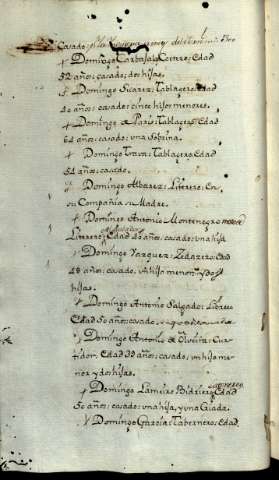 Casado
Domingo Carbajal: Cotero: Edad
52 años: casado: dos hijas.
Domingo Suarez: Tablagero: Edad
años: casado: cinco hijos menores.
Domingo de Paris: Tablagero: Edad
64 años: casado: una sobrina.
Domingo Trava: Tablagero: Edad
51 años: casado.
Domingo Albarez: Librero: En
Compañia su Madre.
Domingo Antonio Montenegro
Librero: Edad años: casado: una hija
Domingo Vazquez: Zedazero: Edad
48 años: casado. hijo menor y dos
hijas.
Domingo Antonio Salgado: Librero
Edad 50 años: casado.
Domingo Antonio de Olveira: Cur-
tidor: Edad 39 años: casado: un hijo me-
nor y dos hijas.
Domingo Lameiro Edad
50 años: casado: una hija, y una Criada.
Domingo Garcia: Tabernero: Edad